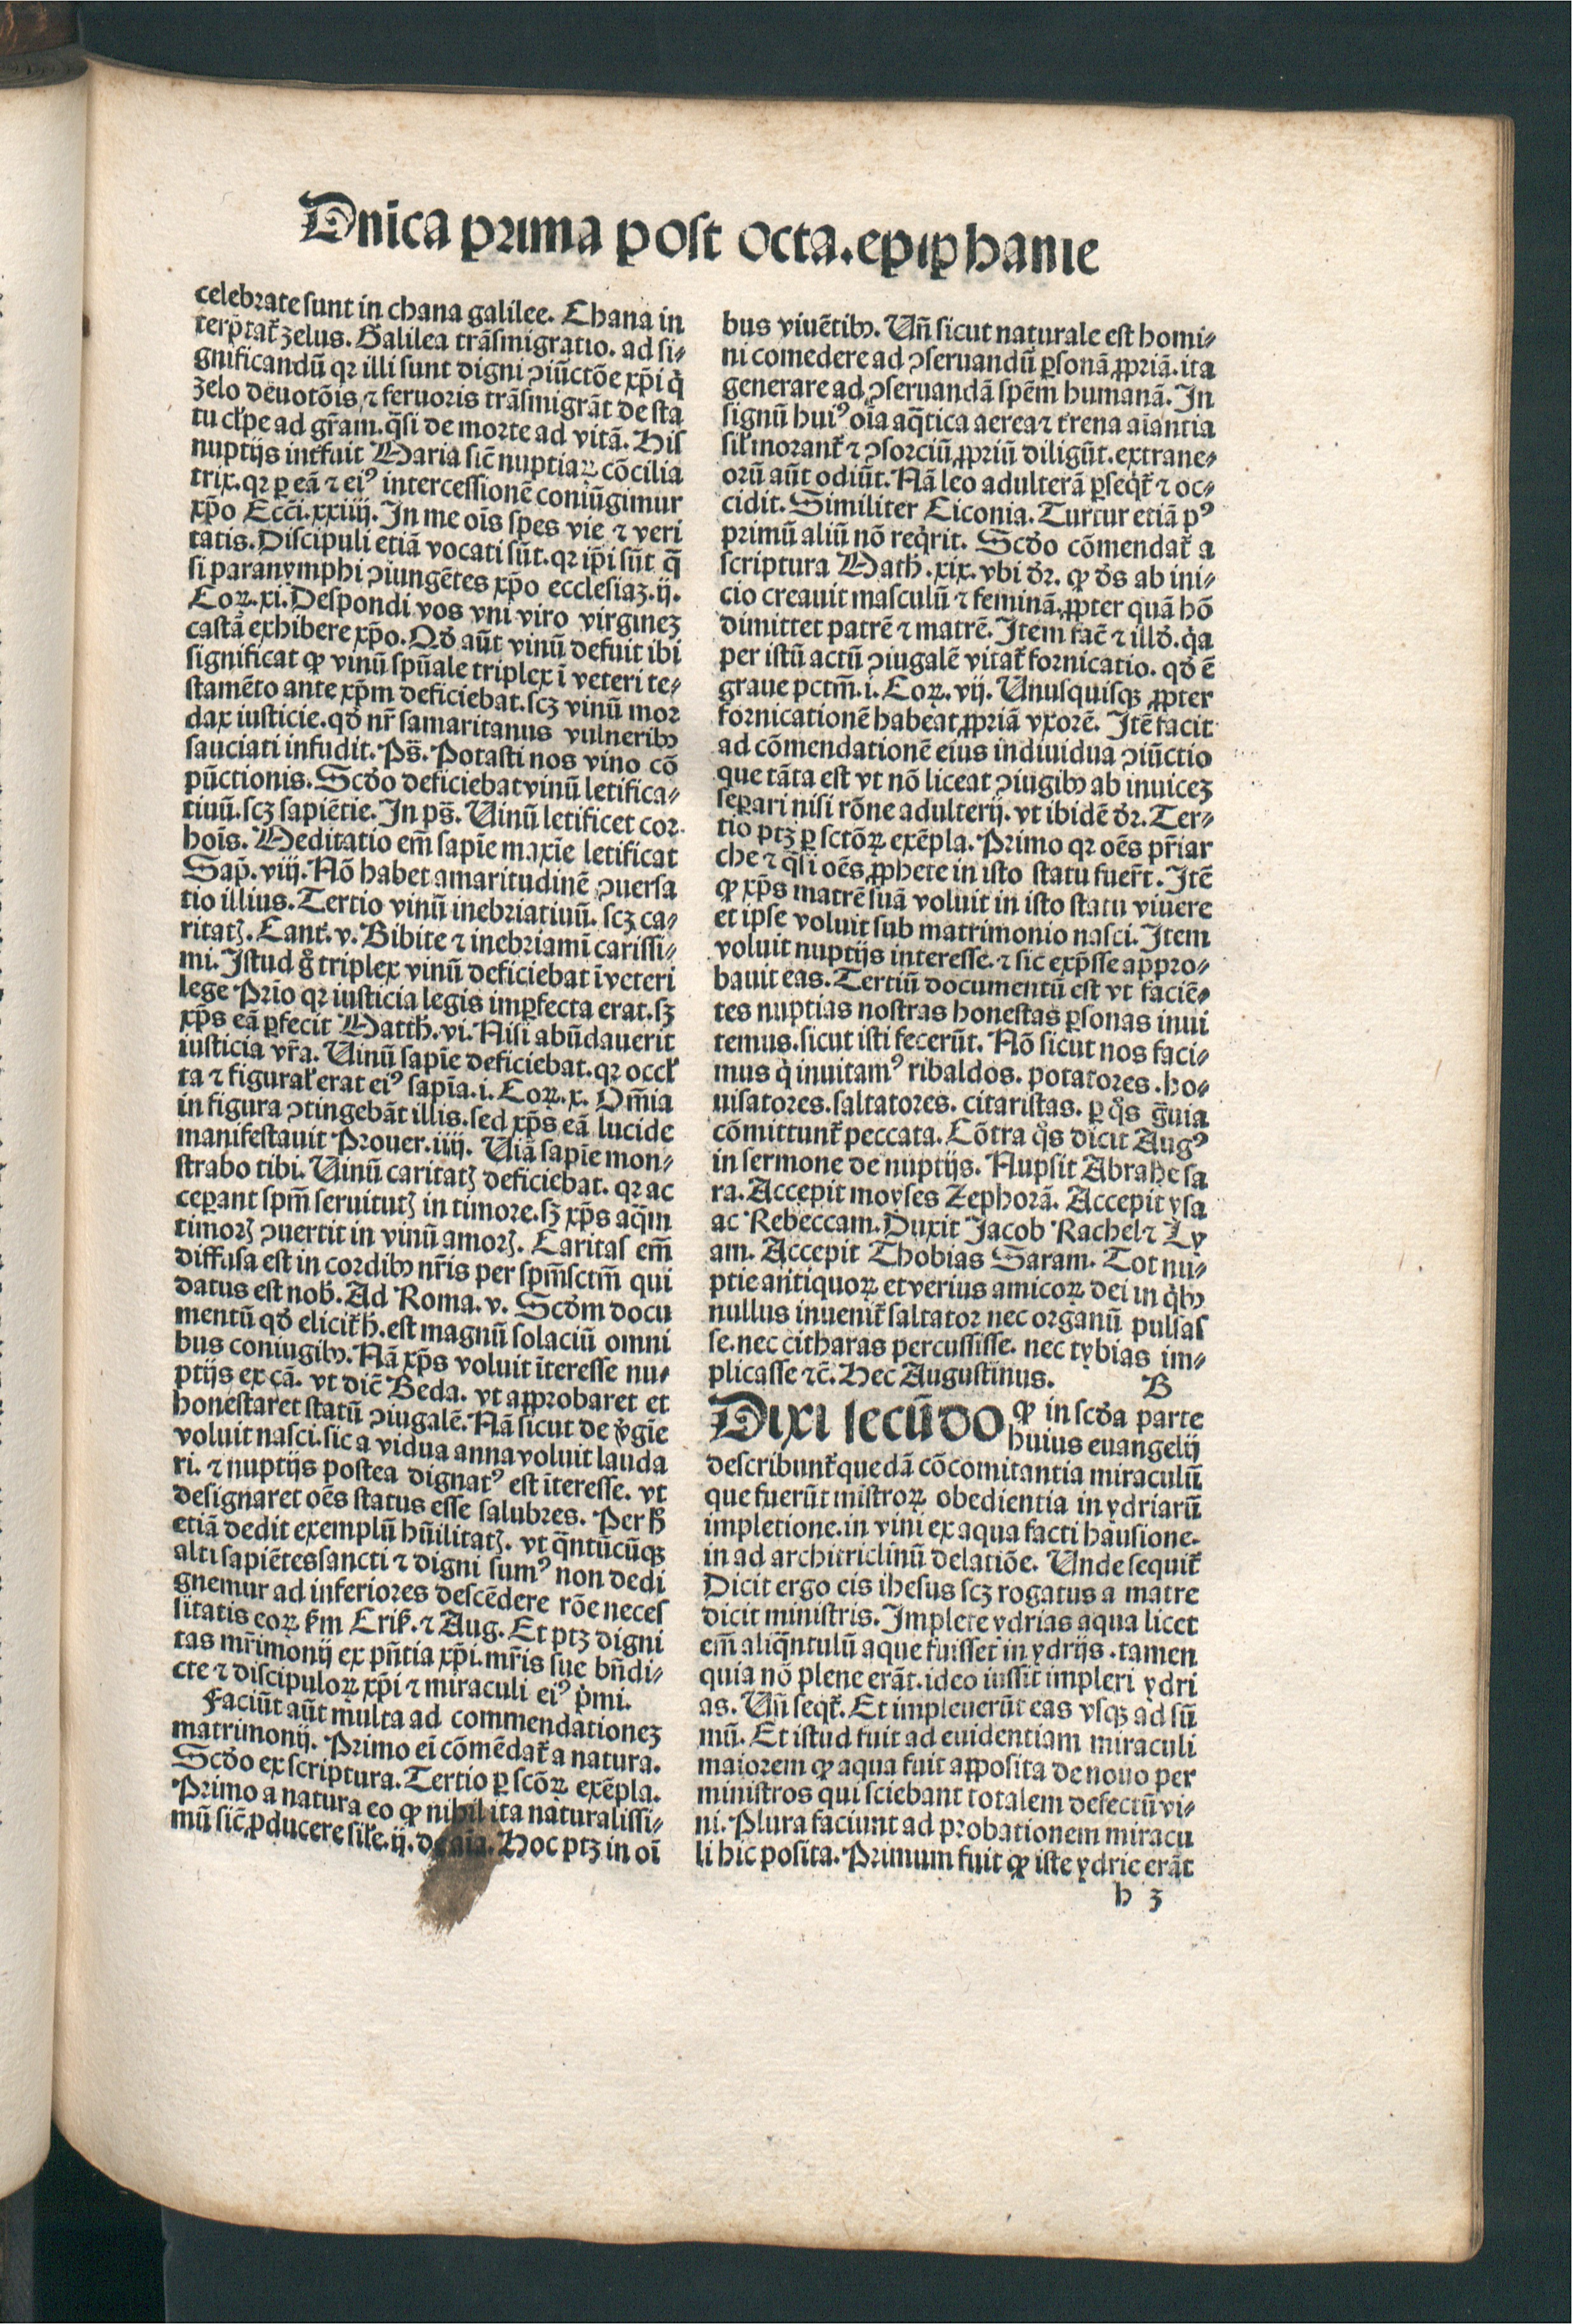 Dnica prima post octa. epiphanie
celebrate sunt in chana galilee. Chana in
terp̄taꝉ zelus. Galilea trāsmigratio. ad si⸗
gnificandū qꝛ illi sunt digni ꝯiūctōe xp̄i q̇
zelo deuotōis ⁊ feruoris trāsmigrāt de sta
tu cl̄pe ad gr̄am. q̄si de morte ad vitā. His
nuptijs intfuit Maria sic̄ nuptiaꝝ cōcilia
trix. qꝛ ꝑ eā ⁊ eiꝰ intercessionē coniūgimur
xp̄o Ecci̅. xxiiij. In me oīs spes vie ⁊ veri
tatis. Discipuli etiā vocati sūt. qꝛ ip̄i sūt q̄
si paranymphi ꝯiungētes xp̄o ecclesiaꝫ. ij.
Coꝝ. xi. Despondi vos vni viro virgineꝫ
castā exhibere xp̄o. Qd̓ aūt vinū defuit ibi
significat ꝙ vinū spūale triplex ī veteri te⸗
stamēto ante xp̄m deficiebat. scꝫ vinū mor
dax iusticie. qd̓ nr̄ samaritanus vulneribꝰ
sauciati infudit. Ps̄. Potasti nos vino cō
pūctionis. Scd̓o deficiebat vinū letifica⸗
tiuū. scꝫ sapiētie. In ps̄. Uinū letificet cor
hoīs. Meditatio em̄ sapīe maxīe letificat
Sap̄. viij. Nō habet amaritudinē ꝯuersa
tio illius. Tertio vinū inebriatiuū. scꝫ ca⸗
ritatꝭ. Canꝉ. v. Bibite ⁊ inebriamī carissi⸗
mi. Istud g̊ triplex vinū deficiebat ī veteri
lege Prīo qꝛ iusticia legis imꝑfecta erat. sꝫ
xp̄s eā ꝑfecit Matth̓. vi. Nisi abūdauerit
iusticia vr̄a. Uinū sapīe deficiebat. qꝛ occꝉ
ta ⁊ figuraꝉ erat eiꝰ sapīa. i. Coꝝ. x. Om̄ia
in figura ꝯtingebāt illis. sed xp̄s eā lucide
manifestauit Prouer. iiij. Uiā sapīe mon⸗
strabo tibi. Uinū caritatꝭ deficiebat. qꝛ ac
ceperant spm̄ seruitutꝭ in timore. sꝫ xp̄s aq̄m
timorꝭ ꝯuertit in vinū amorꝭ. Caritas em̄
diffusa est in cordibꝰ nr̄is per spm̄sctm̄ qui
datus est nob̓. Ad Roma. v. Scd̓m docu
mentū qd̓ eliciꝉ h̓. est magnū solaciū omni
bus coniugibꝰ. Nā xp̄s voluit īteresse nu⸗
ptijs ex cā. vt dic̄ Beda. vt aꝓprobaret et
honestaret statū ꝯiugalē. Nā sicut de v̓gīe
voluit nasci. sic a vidua anna voluit lauda
ri. ⁊ nuptijs postea dignatꝰ est īteresse. vt
designaret oēs status esse salubres. Per h̓
etiā dedit exemplū hūilitatꝭ. vt q̄ntūcūqꝫ
alti sapiētes sancti ⁊ digni sumꝰ non dedi
gnemur ad inferiores descēdere rōe neces
sitatis eoꝝ km Crik̓. ⁊ Aug. Et ptꝫ digni
tas mr̄imonij ex pn̄tia xp̄i. mr̄is sue bn̄di⸗
cte ⁊ discipuloꝝ xp̄i ⁊ miraculi eiꝰ p̓mi.
Faciūt aūt multa ad commendationeꝫ
matrimonij. Primo eī cōmēdaꝉ a natura.
Scd̓o ex scriptura. Tertio ꝑ scōꝝ exēpla.
Primo a natura eo ꝙ nihil ita naturalissi⸗
mū sic̄ ꝓducere sil̓e. ij. de aīa. Hoc ptꝫ in oī
bus viuētibꝰ. Un̄ sicut naturale est homi⸗
ni comedere ad ꝯseruandū ꝑsonā ꝓpriā. ita
generare ad ꝯseruandā spēm humanā. In
signū huiꝰ oīa aq̄tica aerea ⁊ trena aīantia
sil̓ moranꝉ ⁊ ꝯsorciū ꝓpriū diligūt. extrane⸗
orū aūt odiūt. Nā leo adulterā ꝑseqꝉ ⁊ oc⸗
cidit. Similiter Ciconia. Turtur etiā pꝰ
primū aliū nō req̇rit. Scd̓o cōmendaꝉ a
scriptura Math̓. xix. vbi dꝛ. ꝙ d̓s ab ini⸗
cio creauit masculū ⁊ feminā. ꝓpter quā hō
dimittet patrē ⁊ matrē. Item fac̄ ⁊ illd̓. q̇a
per istū actū ꝯiugalē vitaꝉ fornicatio. qd̓ ē
graue pctm̄. i. Coꝝ. vij. Unusquisqꝫ ꝓpter
fornicationē habeat ꝓpriā vxorē. Itē facit
ad cōmendationē eius indiuidua ꝯiūctio
que tāta est vt nō liceat ꝯiugibꝰ ab inuiceꝫ
separari nisi rōne adulterij. vt ibidē dꝛ. Ter⸗
tio ptꝫ ꝑ sctōꝝ exēpla. Primo qꝛ oēs pr̄iar
che ⁊ q̄si oēs ꝓphete in isto statu fuer̄t. Itē
ꝙ xp̄s matrē suā voluit in isto statu viuere
et ipse voluit sub matrimonio nasci. Item
voluit nuptijs interesse. ⁊ sic exp̄sse appro⸗
bauit eas. Tertiū documentū est vt faciē⸗
tes nuptias nostras honestas ꝑsonas inui
temus. sicut isti fecerūt. Nō sicut nos faci⸗
mus q̇ inuitamꝰ ribaldos. potatores. ho⸗
uisatores. saltatores. citaristas. ꝑ q̇s g̅uia
cōmittunꝉ peccata. Cōtra q̇s dicit Augꝰ
in sermone de nuptijs. Nupsit Abrahe sa
ra. Accepit moyses Zephorā. Accepit ysa
ac Rebeccam. Duxit Jacob Rachel ⁊ Ly
am. Accepit Thobias Saram. Tot nu⸗
ptie antiquoꝝ et verius amicoꝝ dei in q̇bꝰ
nullus inueniꝉ saltator nec organū pulsas
se. nec citharas percussisse. nec tybias im⸗
plicasse ⁊c̄. Hec Augustinus.
B
Dixi secūdo ꝙ in scd̓a parte
huius euangelij
describunꝉ quedā cōcomitantia miraculū
que fuerūt mīstroꝝ obedientia in ydriarū
impletione. in vini ex aqua facti hausione.
in ad architriclinū delatiōe. Unde sequiꝉ
Dicit ergo eis ihesus scꝫ rogatus a matre
dicit ministris. Implete ydrias aqua licet
em̄ aliq̄ntulū aque fuisset in ydrijs. tamen
quia nō plene erāt. ideo iussit impleri ydri
as. Un̄ seqꝉ. Et impleuerūt eas vsqꝫ ad sū
mū. Et istud fuit ad euidentiam miraculi
maiorem ꝙ aqua fuit aꝓposita de nouo per
ministros qui sciebant totalem defectū vi⸗
ni. Plura faciunt ad probationem miracu
li hic posita. Primum fuit ꝙ iste ydrie erāt
h 3